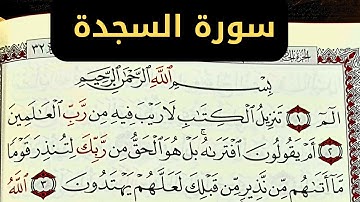 سورة السجدة
بِسْمِ ٱللَّهِ ٱلرَّحْمَٰنِ ٱلرَّحِيمِ
الٓمٓ ١ تَنزِيلُ ٱلْكِتَٰبِ لَا رَيْبَ فِيهِ مِن رَّبِّ ٱلْعَٰلَمِينَ
٢ أَمْ يَقُولُونَ ٱفْتَرَىٰهُ ۚ بَلْ هُوَ ٱلْحَقُّ مِن رَّبِّكَ لِتُنذِرَ قَوْمًا
مَّآ أَتَىٰهُم مِّن نَّذِيرٍ مِّن قَبْلِكَ لَعَلَّهُمْ يَهْتَدُونَ ٣ ٱللَّهُ